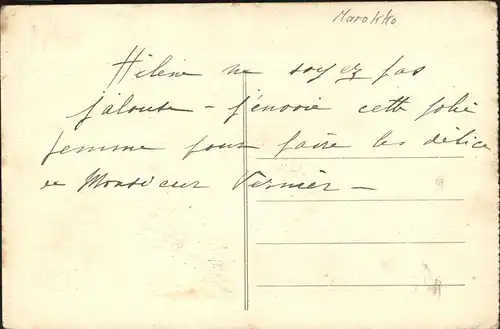 Marokko
Hélène ne soyez pas
jalouse - j'envoie cette jolie
femme pour faire les délices
de Monsieur Vernier -